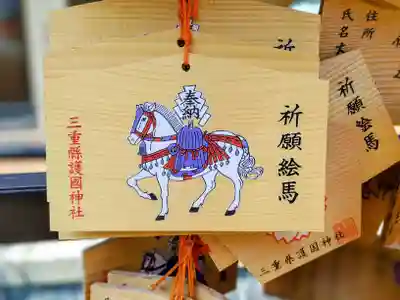 奉納
祈願絵馬
三重縣護國神社
祈
住所
氏名
祈願絵馬
三重縣護国神社